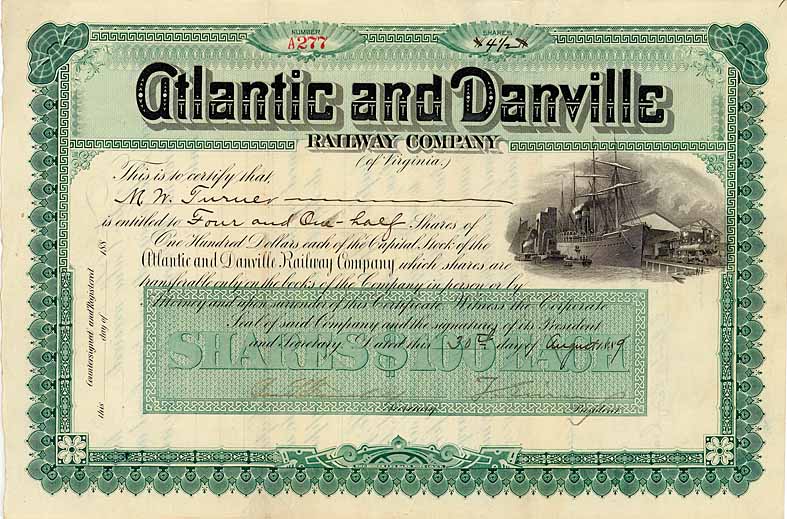 NUMBER
A277
SHARES
4½
Atlantic and Danville
RAILWAY COMPANY
(of Virginia.)
This is to certify that,
M. W. Turner
is entitled to Four and One-half Shares of
One Hundred Dollars each of the Capital Stock of the
Atlantic and Danville Railway Company which shares are
transferable only on the books of the Company in person or by
Attorney and upon surrender of this Certificate. Witness the Corporate
Seal of said Company and the signatures of its President
and Secretary. Dated this 30th day of August 1889
SHARES $100 EACH
Secretary. President.
Countersigned and Registered
this day of 188